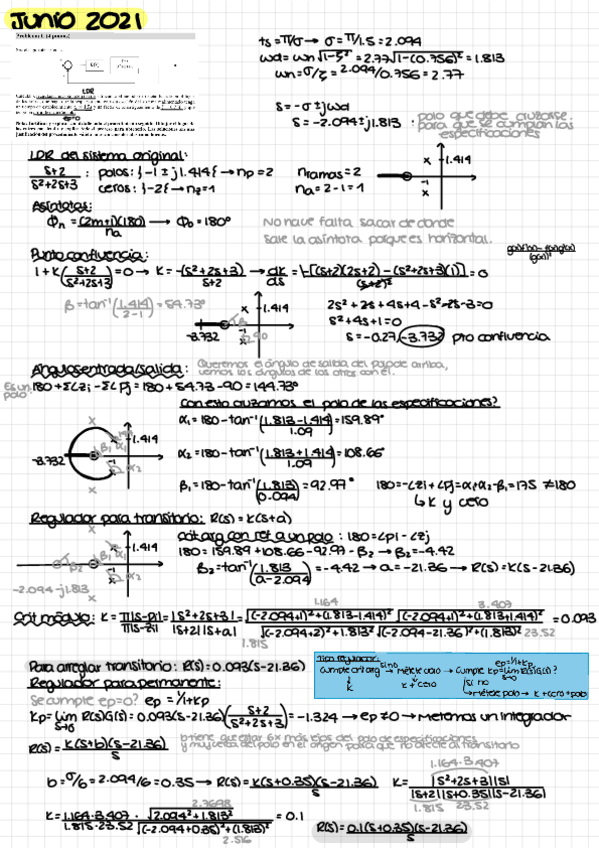 JUNIO 2021
Problema 1. (4 puntos)
LDR
ep=0
ts = π/σ → σ = π/1.5 = 2.094
ωd = ωn√1-ζ² = 2.77√1-(0.756)² = 1.813
ωn = σ/ζ = 2.094/0.756 = 2.77
s = -σ ± jωd
s = -2.094 ± j1.813 : polo que debe cruzarse
para que se cumplan las
especificaciones
LDR del sistema original:
s+2 / s²+2s+3 : polos: {-1 ± j1.414} → np = 2
ceros: {-2} → nz = 1
nramas = 2
na = 2-1 = 1
1.414
-1
Asíntotas:
Φn = (2m+1)(180) / na → Φ0 = 180°
No hace falta sacar de donde
sale la asíntota porque es horizontal.
Punto confluencia:
1 + K (s+2 / s²+2s+3) = 0 → K = -(s²+2s+3) / s+2 → dK/ds = -[(s+2)(2s+2) - (s²+2s+3)(1)] / (s+2)² = 0
β = tan⁻¹(1.414 / 2-1) = 54.73°
1.414
-3.732
-1
90
2s²+2s+4s+4-s²-2s-3=0
s²+4s+1=0
s = -0.27, -3.732 pto confluencia
Ángulos entrada/salida: Queremos el ángulo de salida del polo de arriba,
vemos los ángulos de los otros con él.
Es un polo: 180 + Σ∠zi - Σ∠Pj = 180 + 54.73 - 90 = 144.73°
Con esto cruzamos el polo de las especificaciones?
α1 = 180 - tan⁻¹(1.813-1.414 / 1.09) = 159.89°
1.414
-3.732
α2 = 180 - tan⁻¹(1.813+1.414 / 1.09) = 108.66°
β1 = 180 - tan⁻¹(1.813 / 0.094) = 92.97° 180 = -∠zi + ∠pj = α1+α2-β1 = 175 ≠ 180
↳ K y cero
Regulador para transitorio: R(s) = K(s+a)
crit arg con ret a un polo : 180 = ∠pi - ∠zj
1.414
180 = 159.89 + 108.66 - 92.97 - β2 → β2 = -4.42
β2 = tan⁻¹(1.813 / a-2.094) = -4.42 → a = -21.36 → R(s) = K(s-21.36)
-2.094-j1.813
1.164 3.407
Crit módulo: K = Π|s-pi| / Π|s-zi| = |s²+2s+3| / |s+2||s+a| = √(-2.094+1)²+(1.813-1.414)² √(-2.094+1)²+(1.813+1.414)² / √(-2.094+2)²+1.813² √(-2.094-21.36)²+(1.813)² = 0.093
1.815 23.52
Para arreglar transitorio: R(s) = 0.093(s-21.36)
Regulador para permanente:
Se cumple ep=0? ep = 1/1+Kp
Kp = lim s→0 R(s)G(s) = 0.093(s-21.36)(s+2 / s²+2s+3) = -1.324 → ep ≠ 0 → metemos un integrador
R(s) = K(s+b)(s-21.36) / s
b tiene que estar 6x más lejos del polo de especificaciones
b = σ/6 = 2.094/6 = 0.35 → R(s) = K(s+0.35)(s-21.36) / s
1.164·3.407
K = |s²+2s+3||s| / |s+2||s+0.35||s-21.36|
1.815 23.52
2.7698
K = 1.164·3.407 / 1.815·23.52 · √2.094²+1.813² / √(-2.094+0.35)²+(1.813)² = 0.1
2.516
R(s) = 0.1(s+0.35)(s-21.36) / s